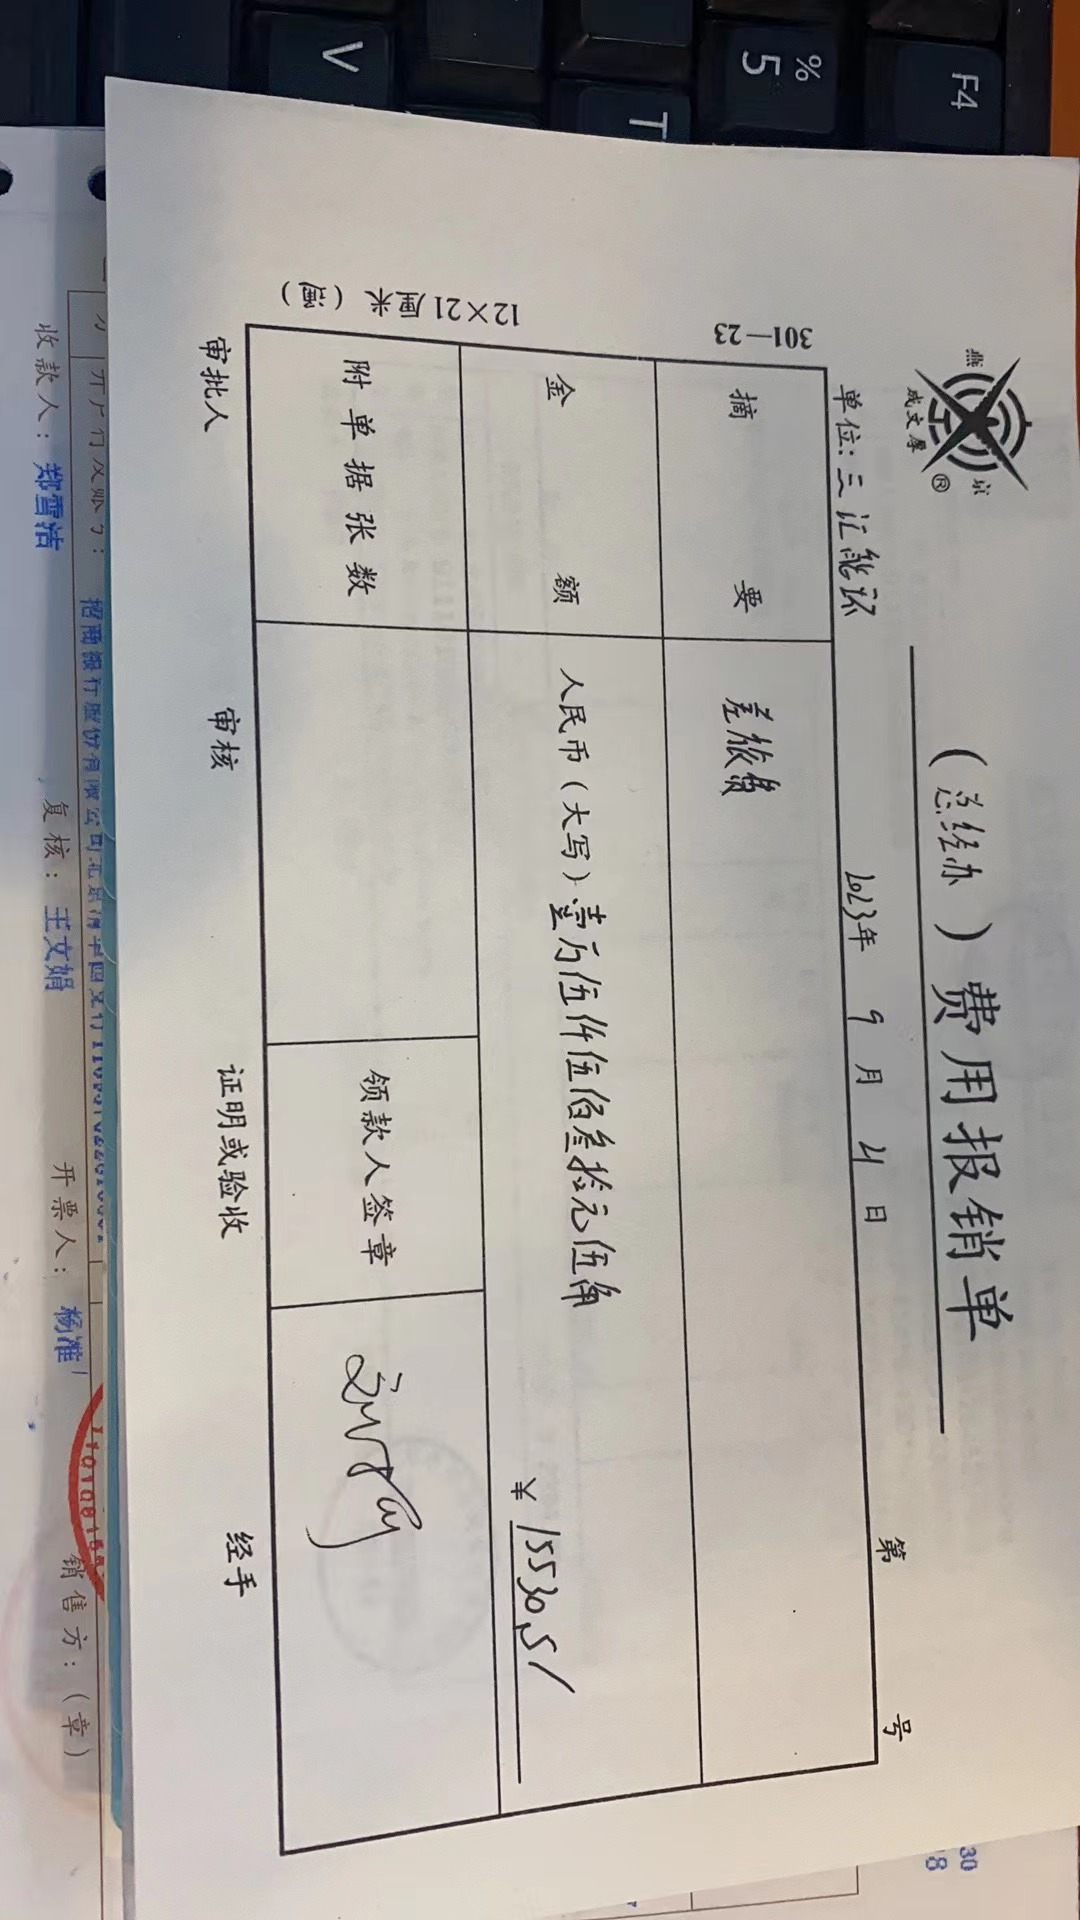 燕京
成文厚®
(总经办)费用报销单
单位:三汇能环 2023年 9月 21日 第 号
301—23
12×21厘米(厘)
摘要 差旅费
金额 人民币(大写)壹万伍仟伍佰叁拾元伍角
¥15530.5/
附单据张数 领款人签章
审批人 审核 证明或验收 经手
招商银行股份有限公司北京清华园支行
收款人:郑雪洁 复核:王文娟 开票人:杨淮 销售方:(章)
30
8
F4
%
5
T
V